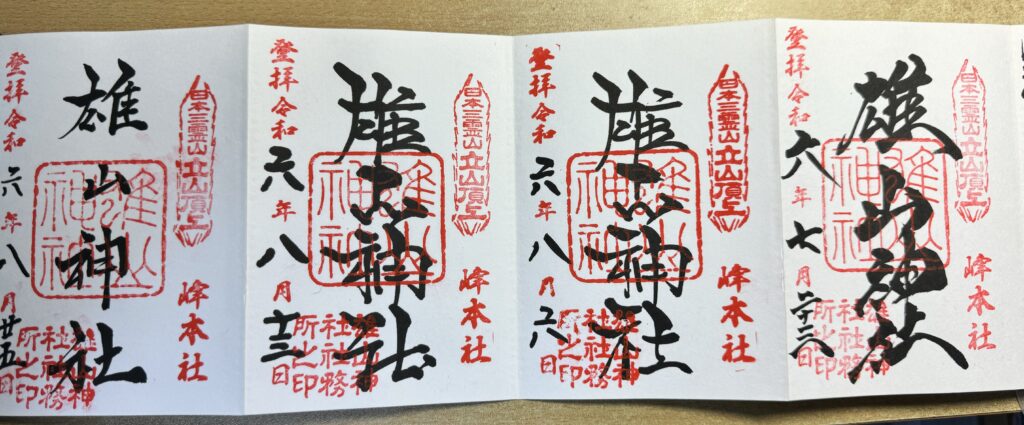 日本三霊山立山頂上
峰本社
雄山神社
雄山
神社
登拝令和六年七月廿六日
雄山神
社社務
所之印
日本三霊山立山頂上
峰本社
雄山神社
雄山
神社
登拝令和六年八月六日
雄山神
社社務
所之印
日本三霊山立山頂上
峰本社
雄山神社
雄山
神社
登拝令和六年八月十三日
雄山神
社社務
所之印
日本三霊山立山頂上
峰本社
雄山神社
雄山
神社
登拝令和六年八月廿五日
雄山神
社社務
所之印